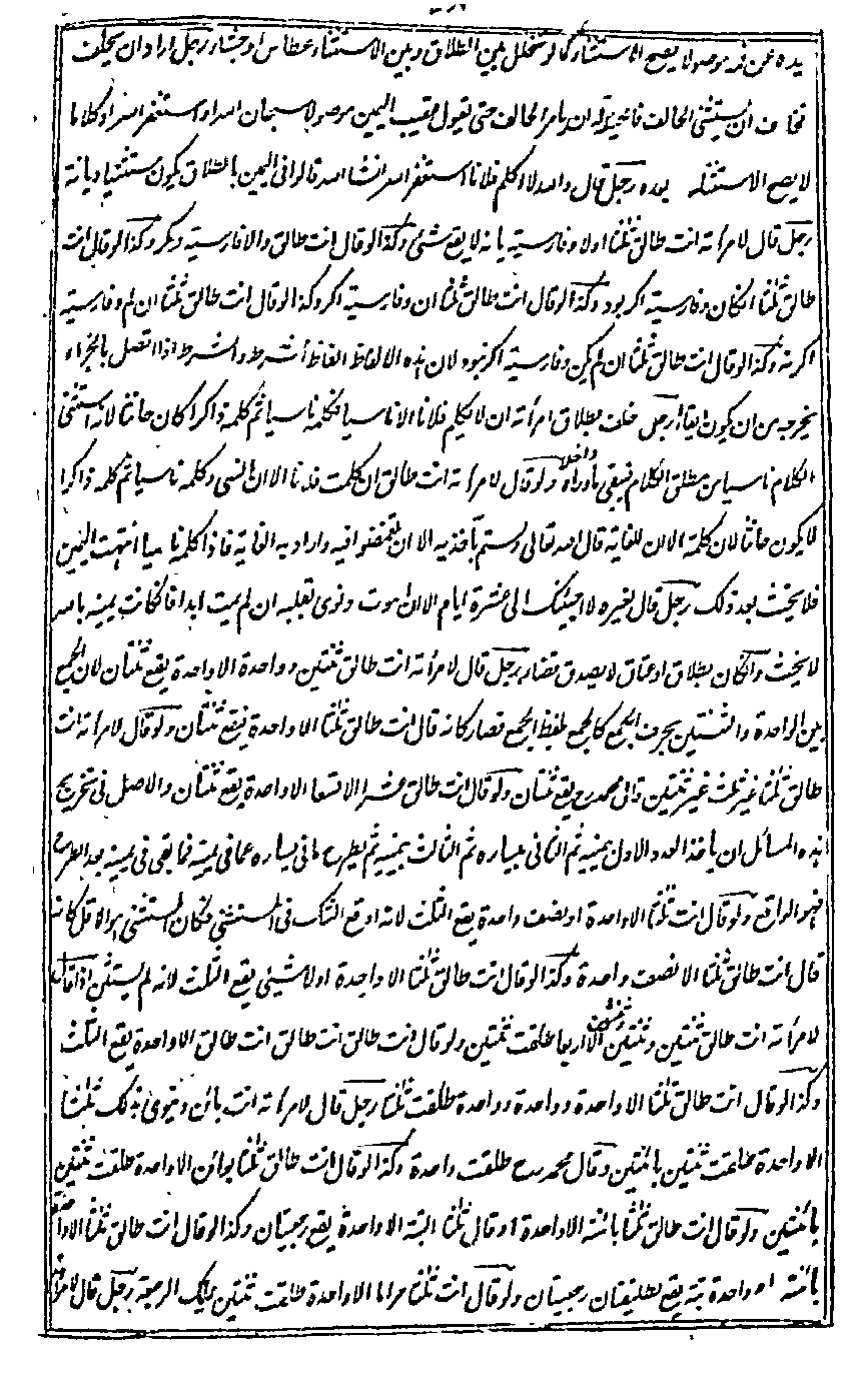 يده عن فمه موصولا يصح الاستثناء كما لو تخلل بين الطلاق وبين الاستثناء عطاس او جشاء رجل اراد ان يحلف
فخاف ان يستثني الحالف فالحيلة ان يامر الحالف حتى يقول عقيب اليمين موصولا سبحان الله او استغفر الله او كلاما
لا يصح الاستثناء بعده رجل قال والله لا اكلم فلانا استغفر الله انشاء الله قالوا في اليمين بالطلاق يكون مستثنيا ديانة
رجل قال لامرأته انت طالق ثلثا اولا وفارسية يا نه لا يقع شئ وكذا لو قال انت طالق والا فارسية وكر وكذا لو قال انت
طالق ثلثا انكان وفارسية اكر بود وكذا لو قال انت طالق ثلثا ان وفارسية اكر وكذا لو قال انت طالق ثلثا ان لم وفارسية
اكر نه وكذا لو قال انت طالق ثلثا ان لم يكن وفارسية اكر نبود لان هذه الالفاظ الفاظ الشرط والشرط اذا اتصل بالجزاء
يخرجه من ان يكون ايقاعا رجل حلف بطلاق امرأته ان لا يكلم فلانا الا ناسيا فكلمه ناسيا ثم كلمه ذاكرا كان حانثا لانه استثنى
الكلام ناسيا من مطلق الكلام فبقي ما وراءه داخلا ولو قال لامرأته انت طالق ان كلمت فلانا الا ان انسى وكلمه ناسيا ثم كلمه ذاكرا
لا يكون حانثا لان كلمة الا ان للغاية قال الله تعالى ولستم بآخذيه الا ان تغمضوا فيه واراد به الغاية فاذا كلمه ناسيا انتهت اليمين
فلا يحنث بعد ذلك رجل قال لغيره لاجيئنك الى عشرة ايام الا ان اموت ونوى بقلبه ان لم يمت ابدا فانكانت يمينه بالله
لا يحنث وانكان بطلاق او عتاق لا يصدق قضاء رجل قال لامرأته انت طالق ثنتين وواحدة الا واحدة يقع ثنتان لان الجمع
بين الواحدة والثنتين بحرف الجمع كالجمع بلفظ الجمع فصار كانه قال انت طالق ثلثا الا واحدة فيقع ثنتان ولو قال لامرأته انت
طالق ثلثا غير ثلث غير ثنتين قال محمد رح يقع ثنتان ولو قال انت طالق عشرا الا تسعا الا واحدة يقع ثنتان والاصل في تخريج
هذه المسائل ان ياخذ العدد الاول بيمينه ثم الثاني بيساره ثم الثالث بيمينه ثم يطرح ما في يساره عما في يمينه فما بقي في يمينه بعد الطرح
فهو الواقع ولو قال انت طالق ثلثا الا واحدة او نصف واحدة يقع الثلث لانه اوقع الشك في المستثنى فكان المستثنى هو الاقل كانه
قال انت طالق ثلثا الا نصف واحدة وكذا لو قال انت طالق ثلثا الا واحدة او لا شيئ يقع الثلث لانه لم يستثن اذا قال
لامرأته انت طالق ثنتين وثنتين الا اربعا طلقت ثنتين ولو قال انت طالق انت طالق انت طالق الا واحدة يقع الثلث
وكذا لو قال انت طالق ثلثا الا واحدة وواحدة وواحدة طلقت ثلثا رجل قال لامرأته انت بائن وينوي بذلك ثلثا
الا واحدة طلقت ثنتين بائنتين وقال محمد رح طلقت واحدة وكذا لو قال انت طالق ثلثا بوائن الا واحدة طلقت ثنتين
بائنتين ولو قال انت طالق ثلثا بائنة الا واحدة او قال ثلثا البتة الا واحدة يقع رجعيتان وكذا لو قال انت طالق ثلثا الا واحدة
بائنة او واحدة بتة يقع تطليقتان رجعيتان ولو قال انت ثلثا حراما الا واحدة طلقت ثنتين يملك الرجعة رجل قال لامرأته